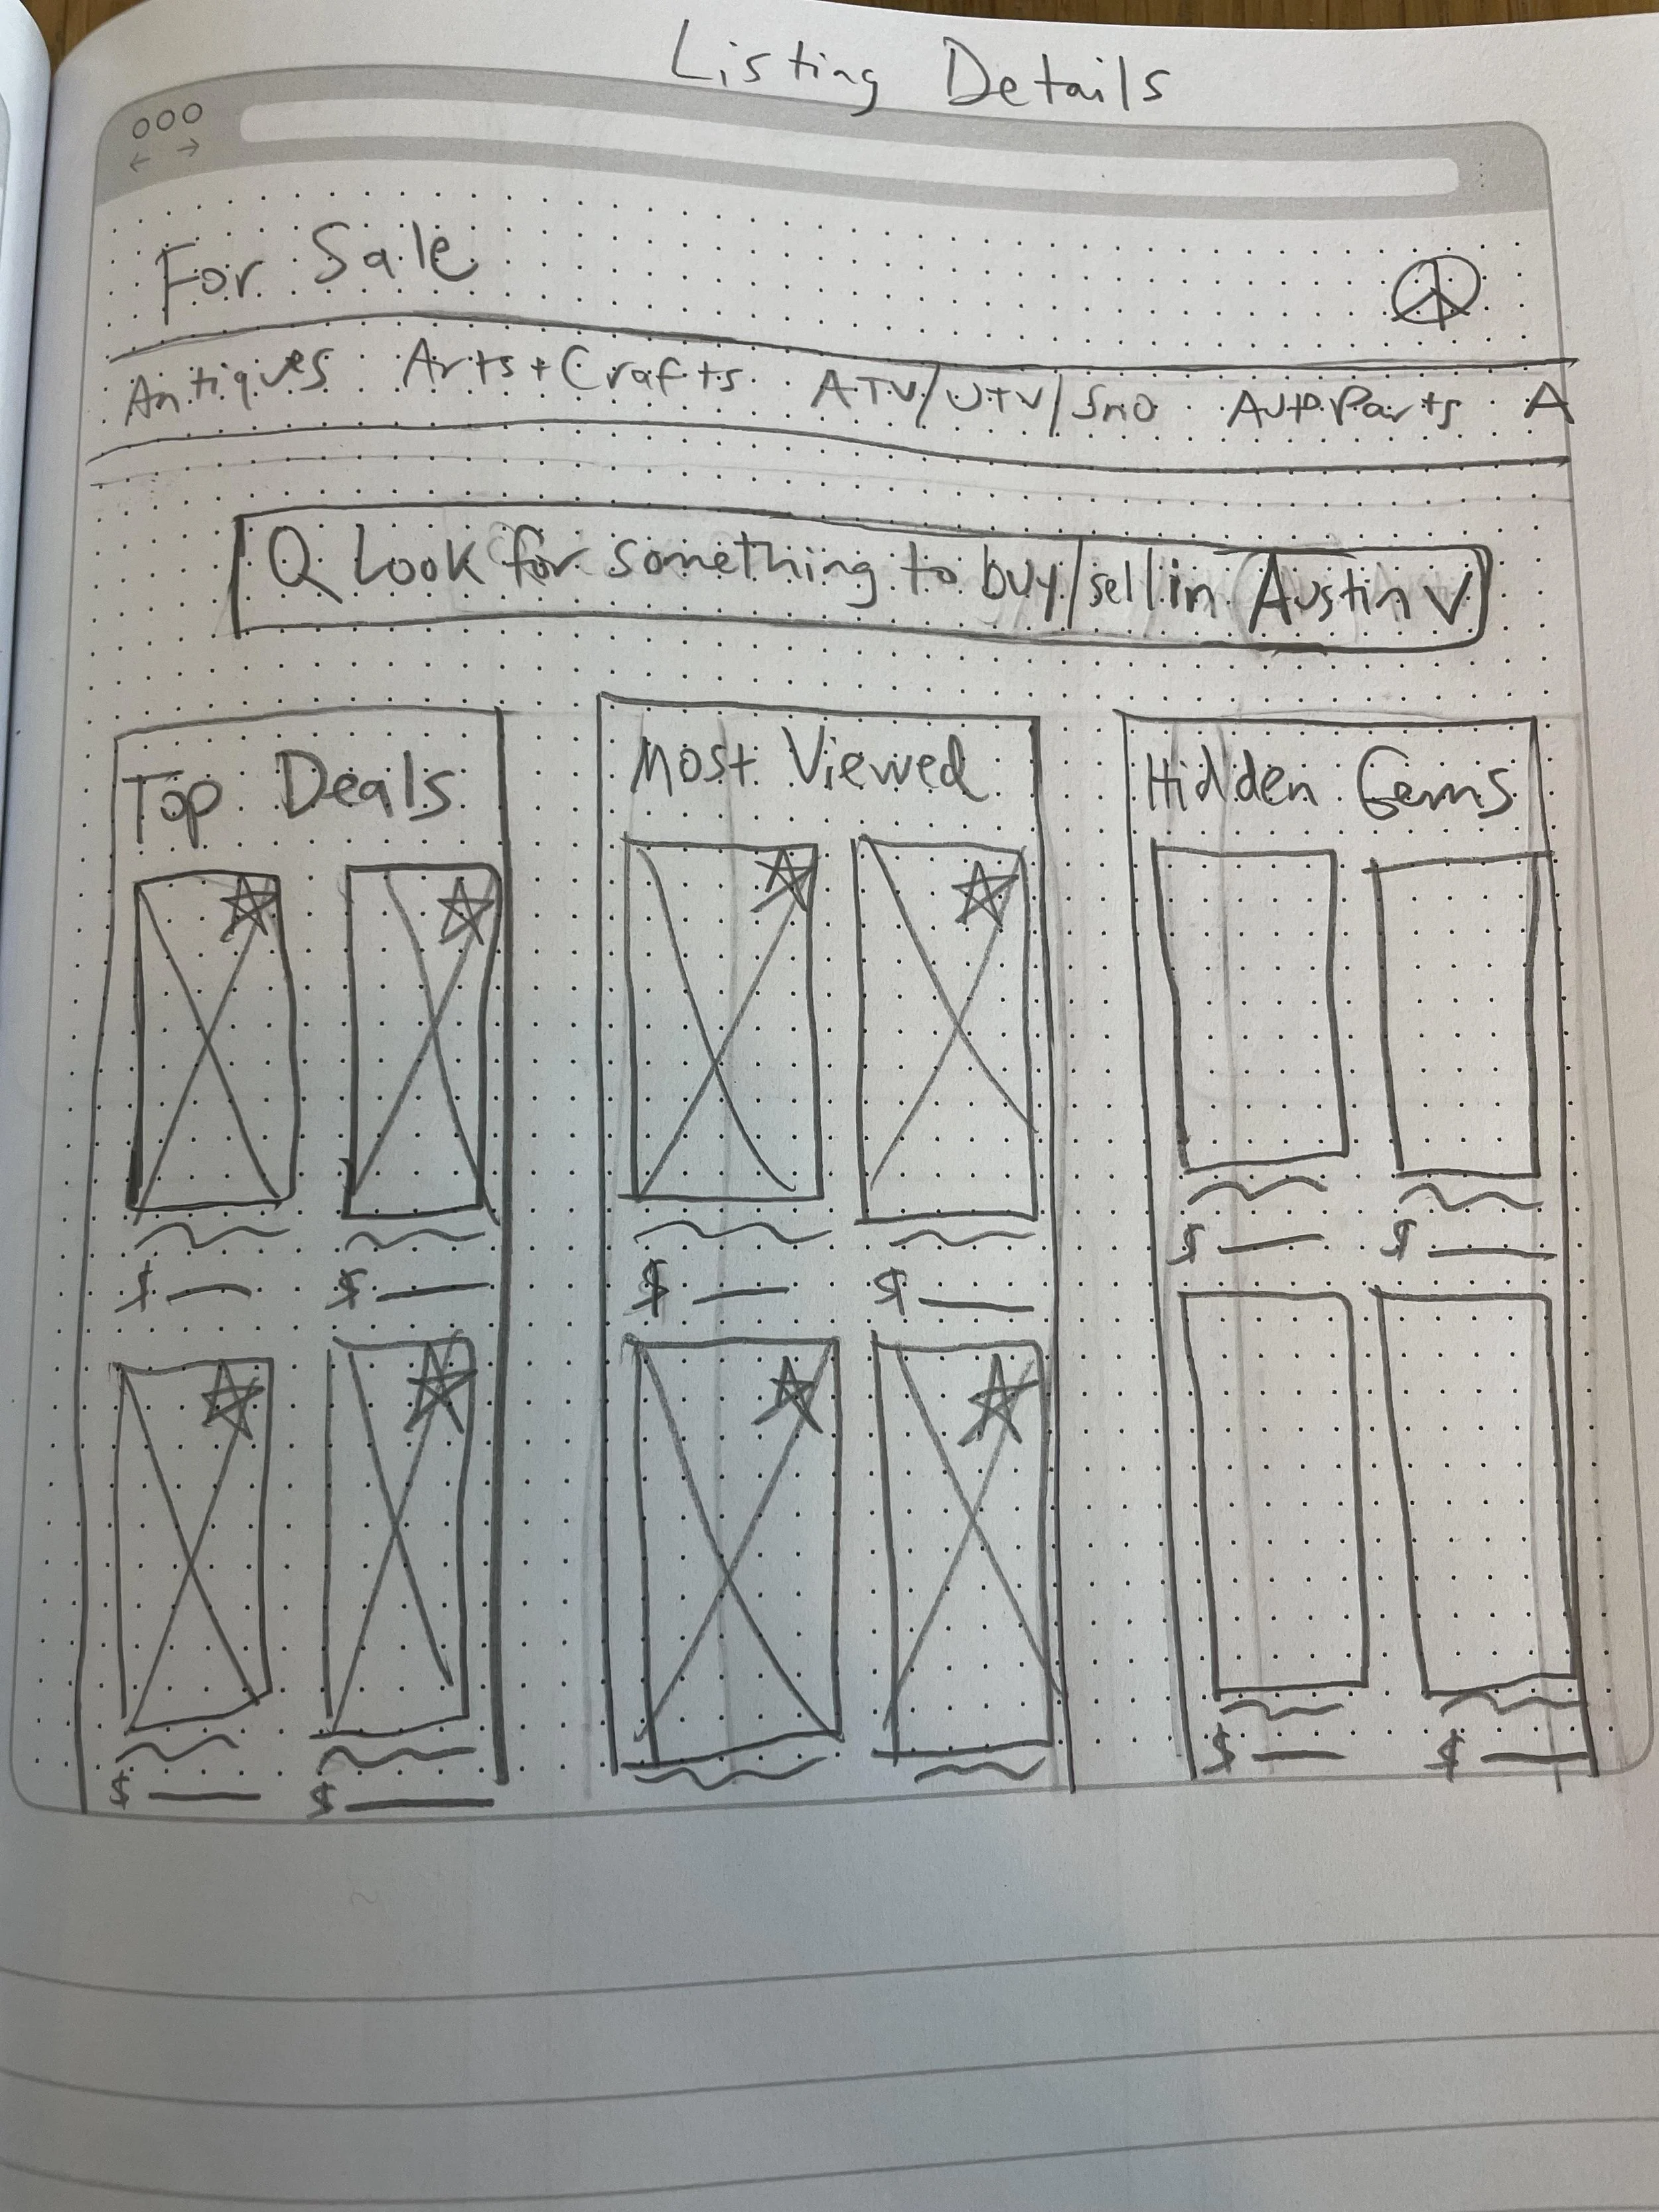 Listing Details
For Sale
Antiques Arts+Crafts ATV/UTV/Sno Auto Parts A
Look for something to buy/sell in Austin
Top Deals
Most Viewed
Hidden Gems
$ $ $ $ $ $
$ $ $ $